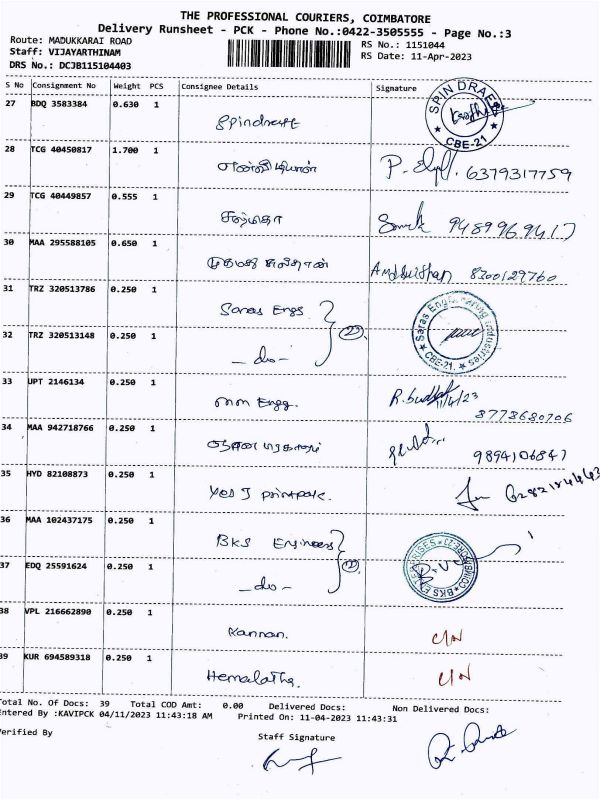 THE PROFESSIONAL COURIERS, COIMBATORE
Delivery Runsheet - PCK - Phone No.:0422-3505555 - Page No.:3
Route: MADUKKARAI ROAD
Staff: VIJAYARTHINAM
DRS No.: DCJB115104403
RS No.: 1151044
RS Date: 11-Apr-2023
S No Consignment No Weight PCS Consignee Details Signature
27 BDQ 3583384 0.630 1 Spindraft
SPIN DRAFT ★ CBE-21 ★
28 TCG 40450817 1.700 1 6379317759
29 TCG 40449857 0.555 1 9489969417
30 MAA 295588105 0.650 1 8300129760
31 TRZ 320513786 0.250 1 Saras Engg
Saras Engineering Industries ★ CBE-21. ★
32 TRZ 320513148 0.250 1 - do -
33 UPT 2146134 0.250 1 mm Engg. 11/4/23
8778680706
34 MAA 942718766 0.250 1 9894106847
35 HYD 82108873 0.250 1 Yes J printpack.
36 MAA 102437175 0.250 1 BKS Engineers
BKS ENTERPRISES
37 EDQ 25591624 0.250 1 - do -
38 VPL 216662890 0.250 1 Kannan. C/N
39 KUR 694589318 0.250 1 Hemalatha. C/N
Total No. Of Docs: 39 Total COD Amt: 0.00 Delivered Docs: Non Delivered Docs:
Entered By :KAVIPCK 04/11/2023 11:43:18 AM Printed On: 11-04-2023 11:43:31
Verified By Staff Signature